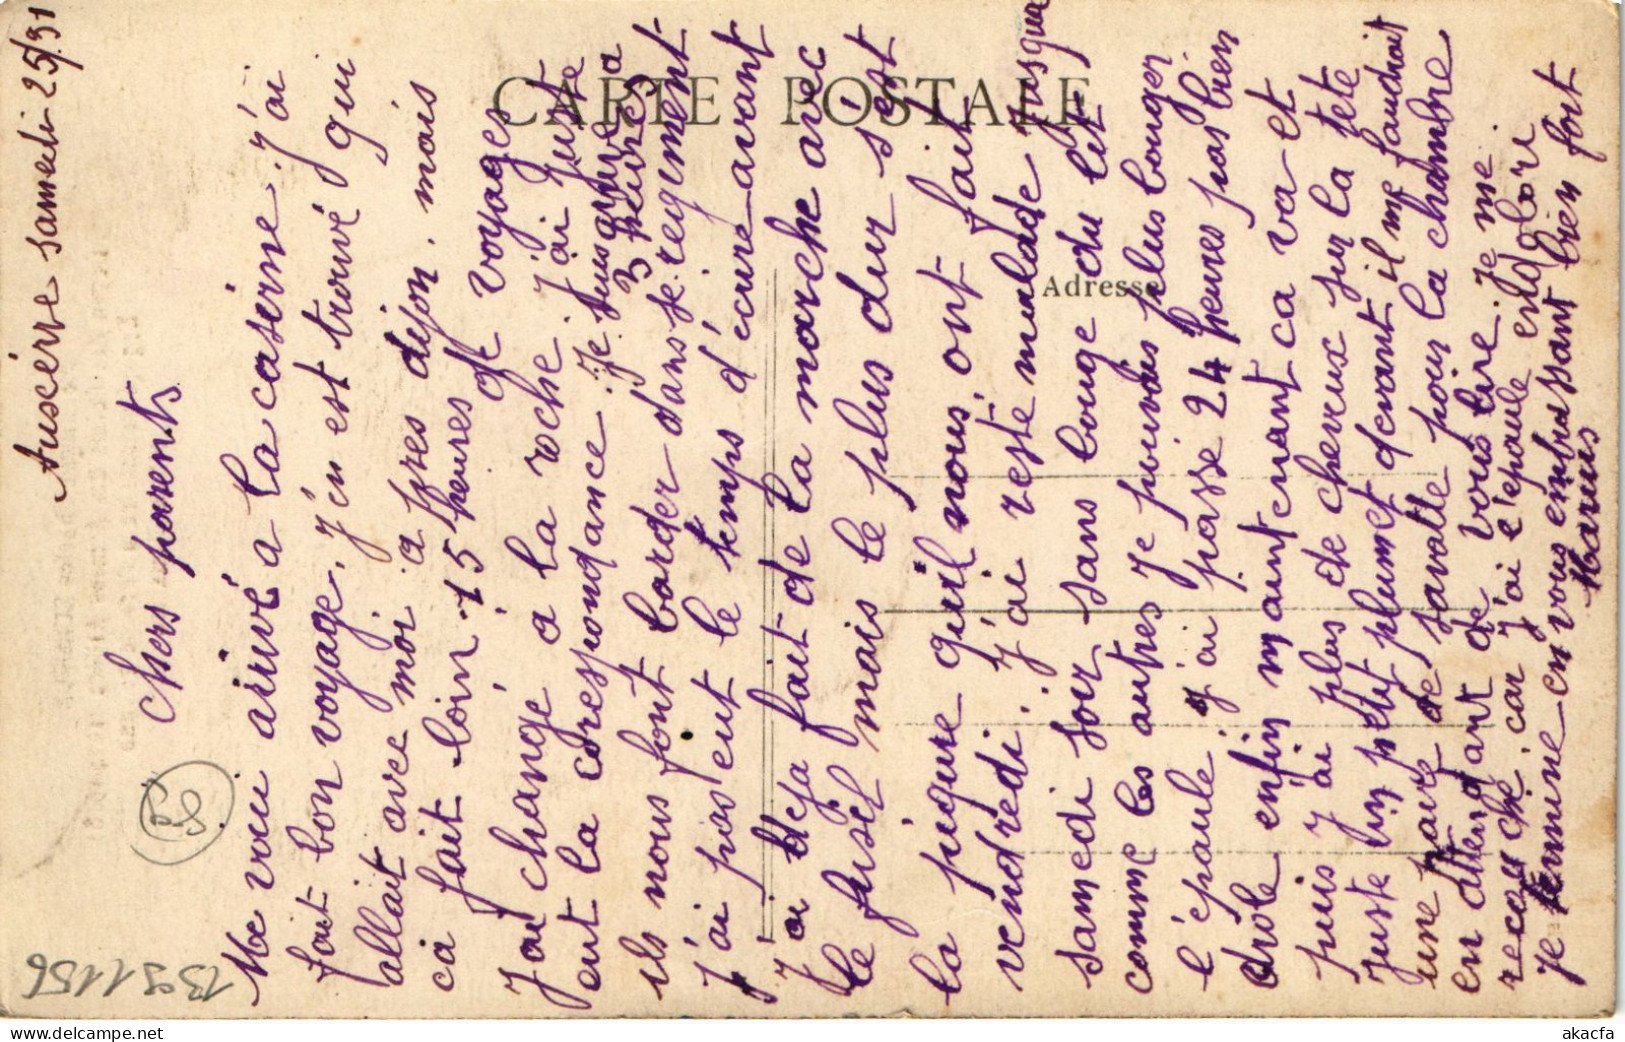 CARTE POSTALE
Adresse
Auxèrre samedi 25/ 31
Chers parents
Me voici arrivé a la caserne. J'ai
fait bon voyage. J'en est trouvé qui
allait avec moi a pres dijon. mais
ca fait loin. 15 heures de voyages
J'ai changé a la roche. J'ai juste
eut la correspondance. Je suis arrivé a 3 heures
ils nous font barder dans se regiment
J'ai pas eut le temps d'écrire avant
J'ai deja fait de la marche avec
le fusil mais le plus dur s'est
la piqure qu'il nous ont fait
vendredi. J'ai resté malade jusqua
samedi soir sans bouge du lit
comme les autres je pouvais plus bouger
l'épaule j'ai passé 24 heures pas bien
drole enfin maintenant ca va et
puis j'ai plus de cheveux sur la tête
juste un petit plumet devant il me faudrait
une paire de savatte pour la chambre
en attendant de vous lire je me
car j'ai l'epaule
Je termine en vous embrassant bien fort
Marius
1391156
akacfa
www.delcampe.net